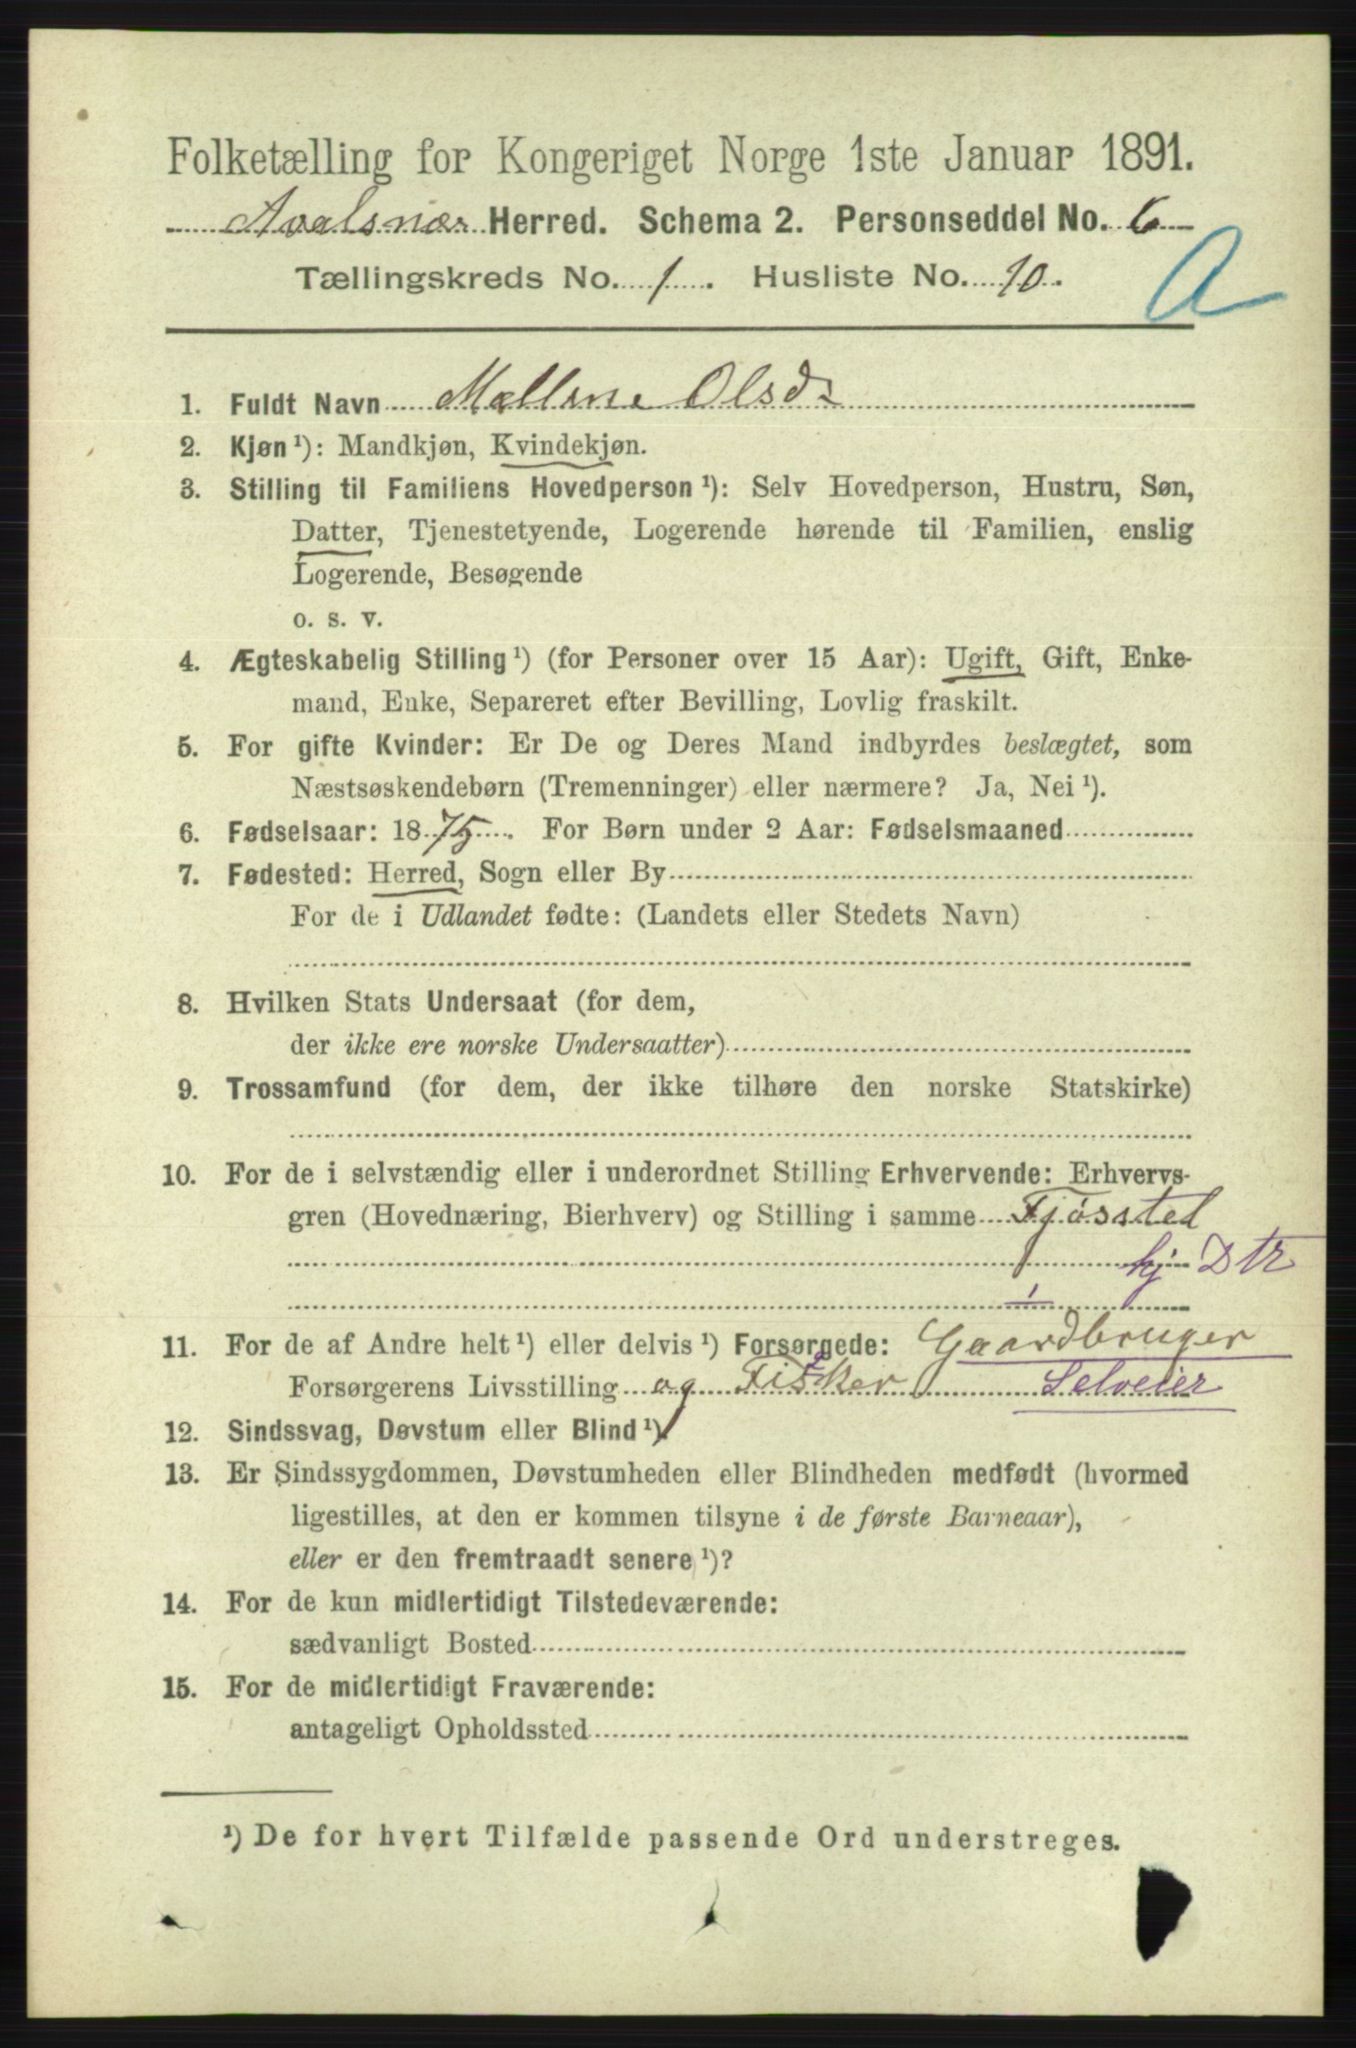 Folketælling for Kongeriget Norge 1ste Januar 1891.
Avalsnæs Herred. Schema 2. Personseddel No. 6
Tællingskreds No. 1. Husliste No. 10.
A
1. Fuldt Navn Mallene Olsdr
2. Kjøn ¹): Mandkjøn, Kvindekjøn.
3. Stilling til Familiens Hovedperson ¹): Selv Hovedperson, Hustru, Søn,
Datter, Tjenestetyende, Logerende hørende til Familien, enslig
Logerende, Besøgende
o. s. v.
4. Ægteskabelig Stilling ¹) (for Personer over 15 Aar): Ugift, Gift, Enke-
mand, Enke, Separeret efter Bevilling, Lovlig fraskilt.
5. For gifte Kvinder: Er De og Deres Mand indbyrdes beslægtet, som
Næstsøskendebørn (Tremenninger) eller nærmere? Ja, Nei ¹).
6. Fødselsaar: 1875. For Børn under 2 Aar: Fødselsmaaned
7. Fødested: Herred, Sogn eller By
For de i Udlandet fødte: (Landets eller Stedets Navn)
8. Hvilken Stats Undersaat (for dem,
der ikke ere norske Undersaatter)
9. Trossamfund (for dem, der ikke tilhøre den norske Statskirke)
10. For de i selvstændig eller i underordnet Stilling Erhvervende: Erhvervs-
gren (Hovednæring, Bierhverv) og Stilling i samme Fjøsstel
hj Dtr
11. For de af Andre helt ¹) eller delvis ¹) Forsørgede: Gaardbruger
Forsørgerens Livsstilling og Fisker Selveier
12. Sindssvag, Døvstum eller Blind ¹)
13. Er Sindssygdommen, Døvstumheden eller Blindheden medfødt (hvormed
ligestilles, at den er kommen tilsyne i de første Barneaar),
eller er den fremtraadt senere ¹)?
14. For de kun midlertidigt Tilstedeværende:
sædvanligt Bosted
15. For de midlertidigt Fraværende:
antageligt Opholdssted
¹) De for hvert Tilfælde passende Ord understreges.